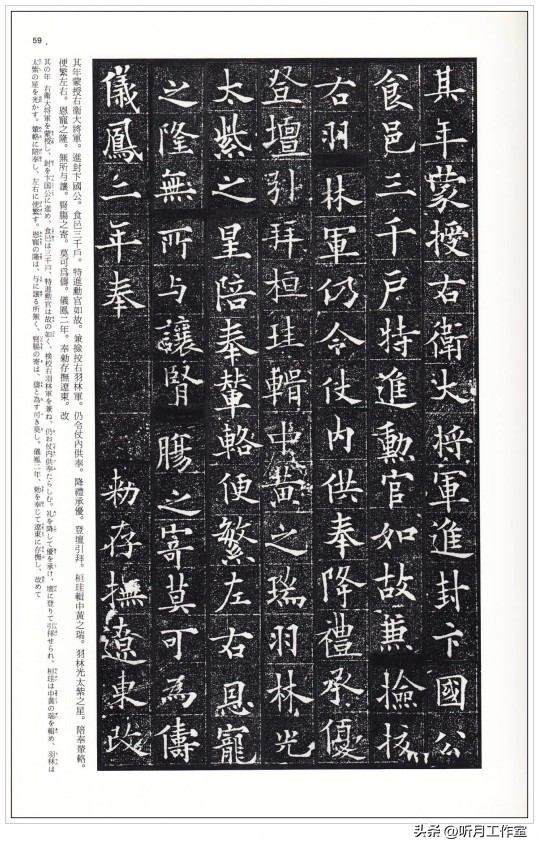 59
其年蒙授右衛大將軍進封卞國公
食邑三千戶特進勳官如故兼撿挍
右羽林軍仍令仗內供奉降禮承優
登壇引拜桓珪輯中黃之瑞羽林光
太紫之星陪奉輦輅便繁左右恩寵
之隆無所与讓腎膓之寄莫可為儔
儀鳳二年奉 勑存撫遼東改
其年蒙授右衛大將軍。進封卞國公。食邑三千戶。特進勳官如故。兼撿挍右羽林軍。仍令仗內供奉。降禮承優。登壇引拜。桓珪輯中黃之瑞。羽林光太紫之星。陪奉輦輅。
便繁左右。恩寵之隆。無所与讓。腎膓之寄。莫可爲儔。儀鳳二年。奉勑存撫遼東。改
其の年 右衛大将軍を蒙授し、封を卞国公に進め、食邑は三千戸、特進勲官は故の如く、検校右羽林軍を兼ね、仍お仗内供奉たらしむ。礼を降して優を承け、壇に登りて引拝せられ、桓珪は中黄の瑞を輯め、羽林は
太紫の星を光かす。輦輅に陪奉し、左右に便繁す。恩寵の隆は、与に譲る所無く、腎腸の寄は、儔と為す可き莫し。儀鳳二年、勅を奉じて遼東に存撫し、改めて
头条 @听月工作室